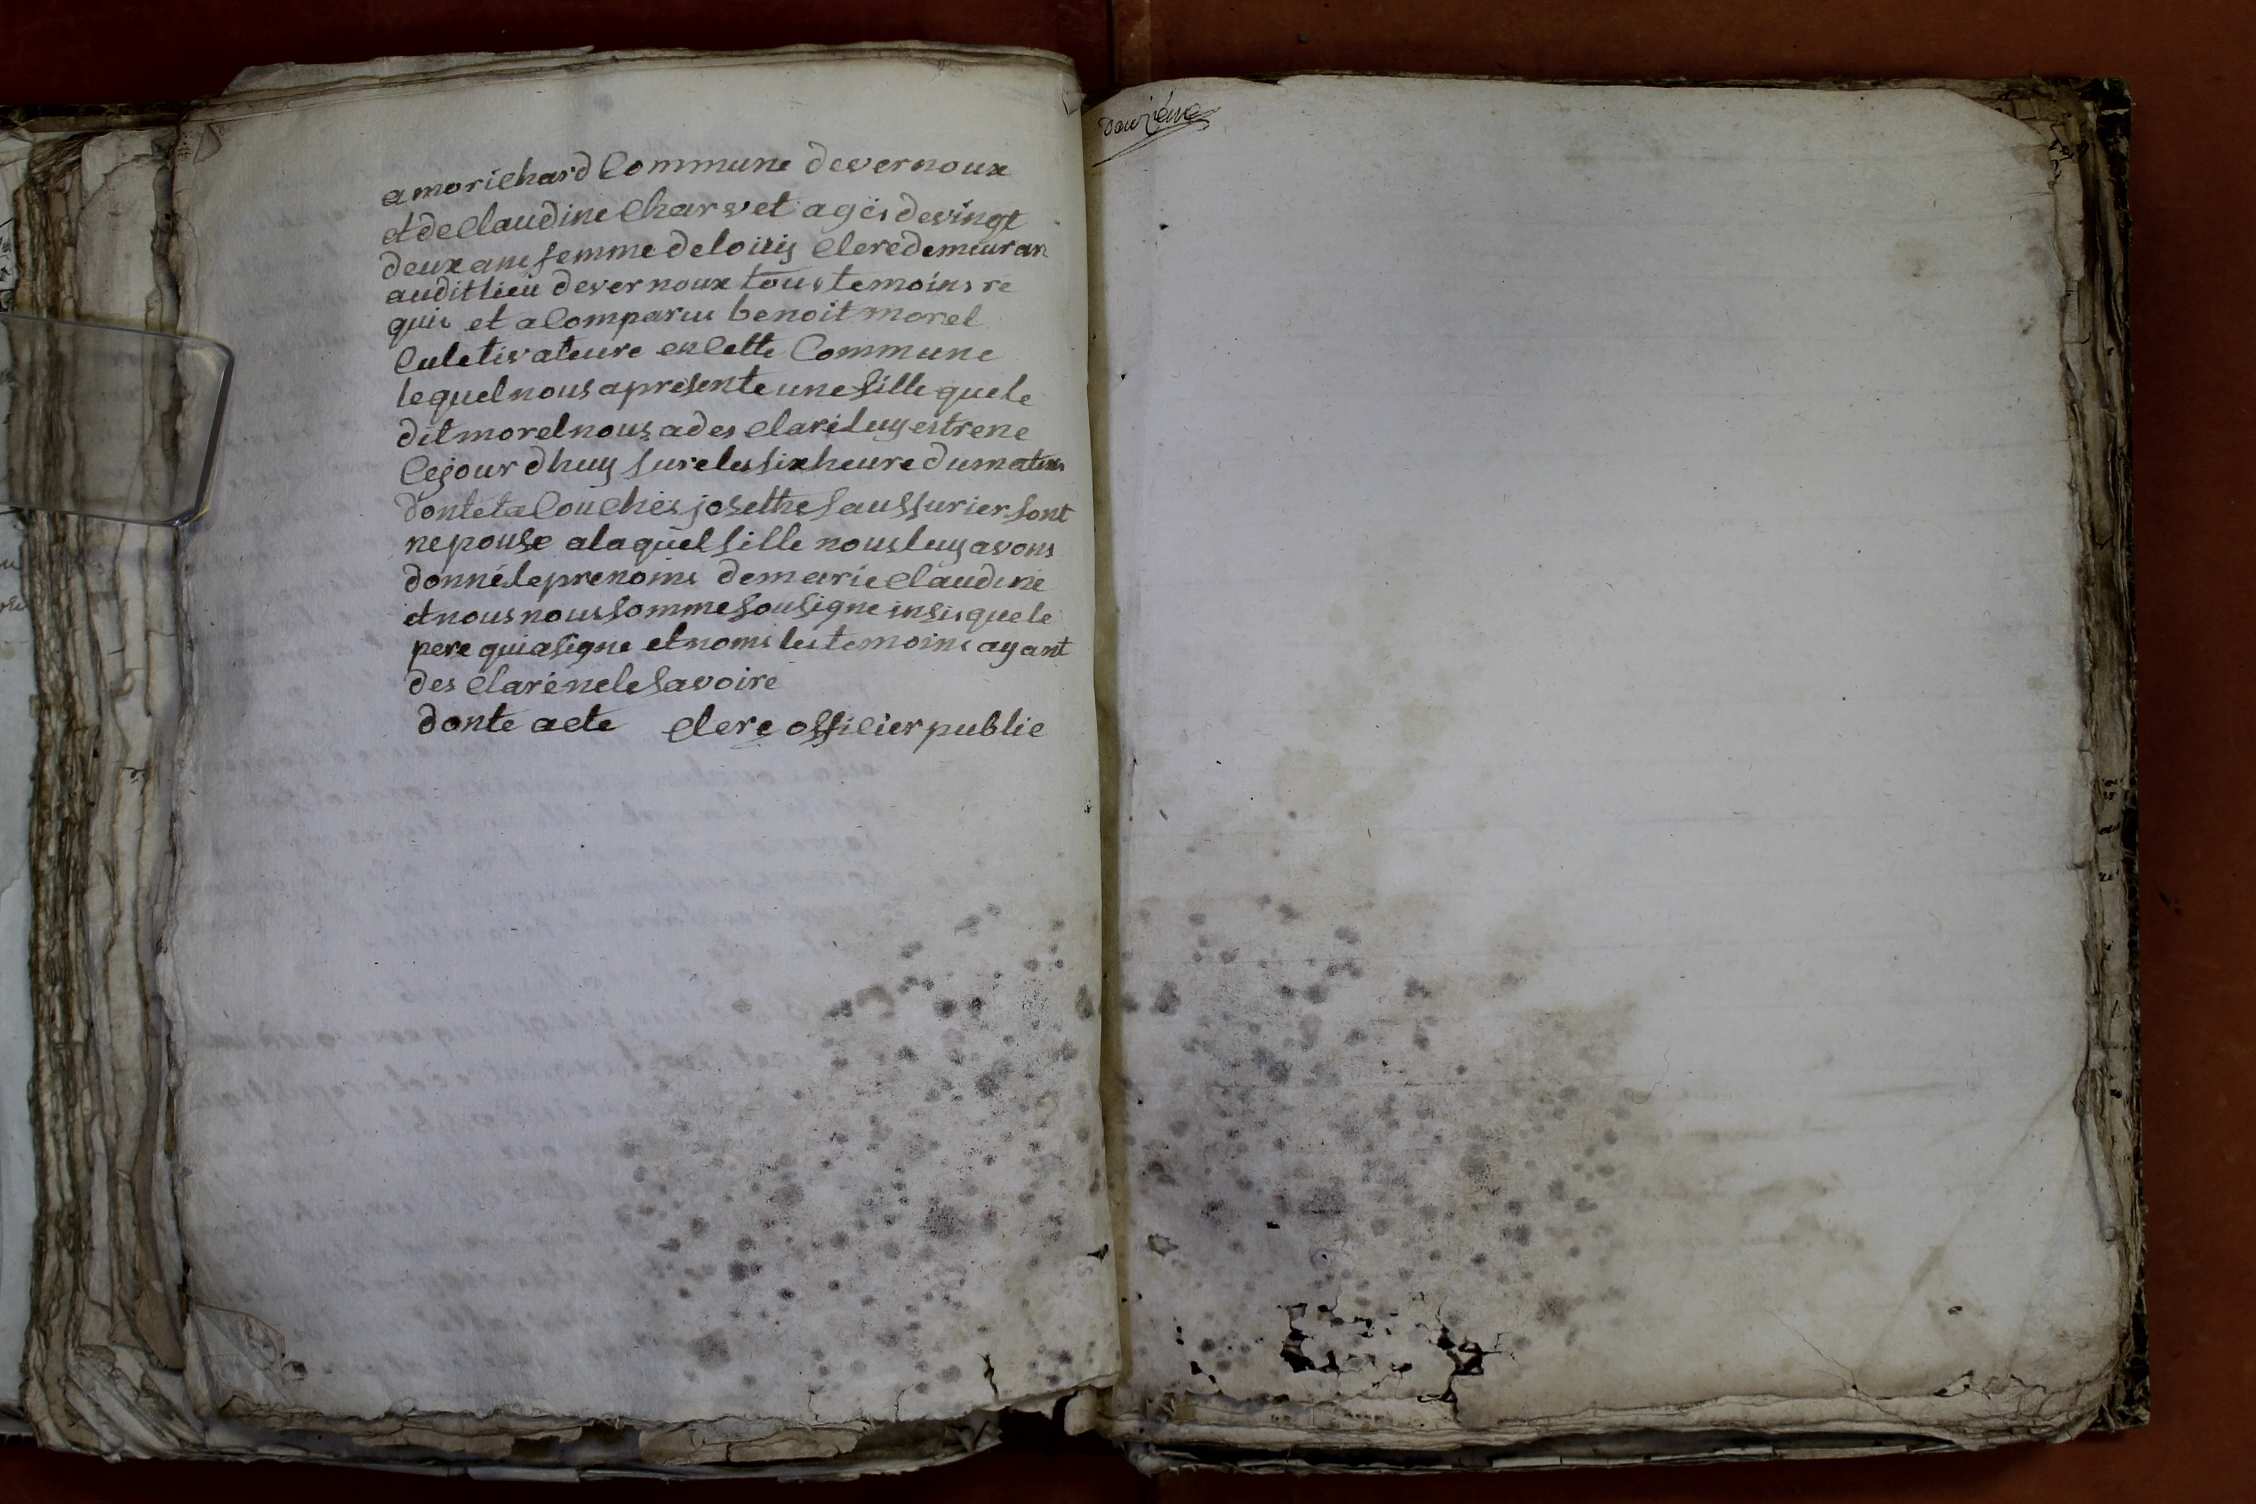 a morichard Commune de vernoux
et de Claudine Charvet agés de vingt
deux ans femme de loüis Clerc demeuran
audit lieu de vernoux tous temoins re
quis et a Comparus benoit morel
Culetivateure en Cette Commune
lequel nous a presente une fille que le
dit morel nous a des Claré luy estre ne
Cejour dhuy sure les six heure du matins
donte ta Couchés josethe saussurier sont
nepouse a la quel fille nous luy avons
donné le prenoms de marie Claudine
et nous nous somme sousigne insis que le
pere qui a signe et noms les temoins ayant
des Claré ne le savoire
donte acte Clerc officier public